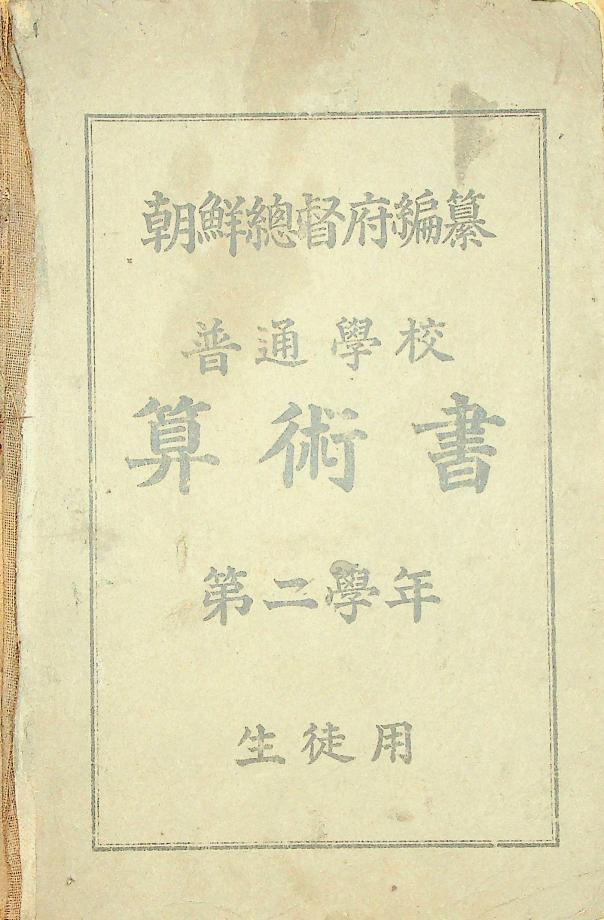 朝鮮總督府編纂
普通學校
算術書
第二學年
生徒用